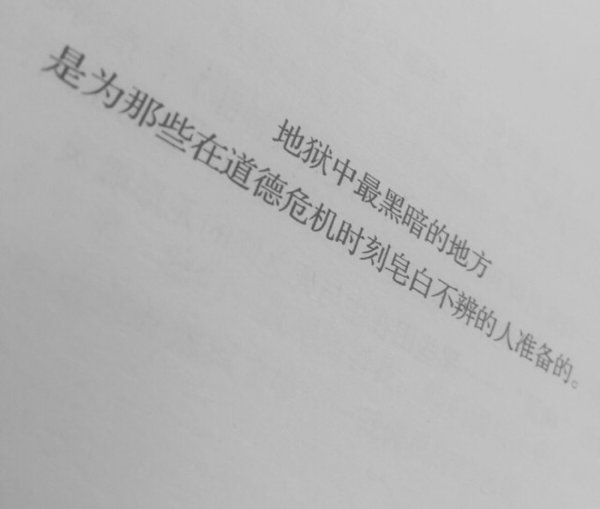 地狱中最黑暗的地方
是为那些在道德危机时刻皂白不辨的人准备的。